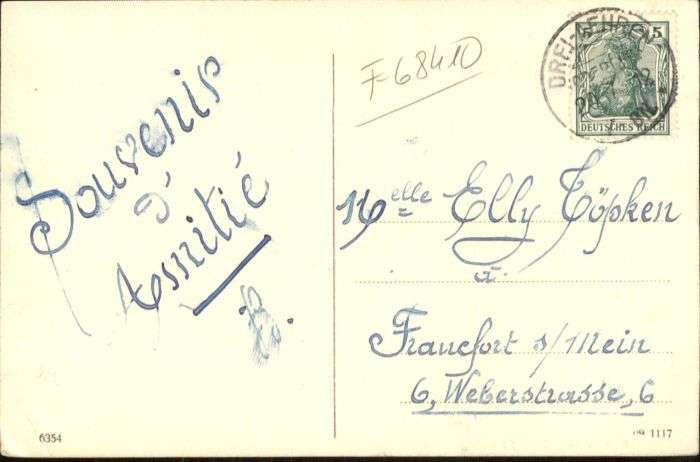 Souvenir
d'
Amitié
F-68410
5
DEUTSCHES REICH
DREI-AEHREN
Melle Elly Töpken
à
Francfort s/Mein
6, Weberstrasse, 6
6354
1117